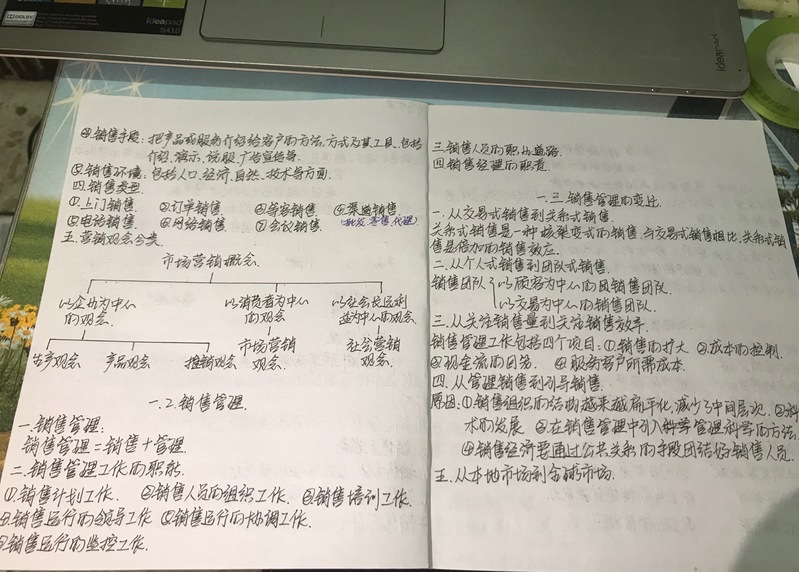 DOLBY
ideapad
S410
ideapad
④销售手段：把产品或服务介绍给客户的方法、方式及其工具、包括
介绍、演示、说服、广告宣传等.
⑤销售环境：包括人口、经济、自然、技术等方面.
四.销售类型
①上门销售 ②订单销售 ③等客销售 ④渠道销售
⑤电话销售 ⑥网络销售 ⑦会议销售 (批发、零售、代理)
五.营销观念分类
市场营销概念
以企业为中心的观念 以消费者为中心的观念 以社会长远利益为中心的观念
生产观念 产品观念 推销观念 市场营销观念 社会营销观念
一.2.销售管理.
一.销售管理：
销售管理=销售+管理
二.销售管理工作的职能
①销售计划工作. ②销售人员的组织工作. ③销售培训工作.
④销售运行的领导工作 ⑤销售运行的协调工作.
⑥销售运行的监控工作.
三.销售人员的职业道路.
四.销售经理的职责.
一.三.销售管理的变迁.
一.从交易式销售到关系式销售.
关系式销售是一种核裂变式的销售,与交易式销售相比,关系式销
售是倍加的销售效应.
二.从个人式销售到团队式销售.
销售团队 以顾客为中心的 销售团队
以交易为中心的销售团队.
三.从关注销售量到关注销售效率.
销售管理工作包括四个项目：①销售的扩大 ②成本的控制.
③现金流的回笼. ④服务客户所需成本.
四.从管理销售到引导销售.
原因：①销售组织的结构越来越扁平化,减少了中间层次. ②科
术的发展 ③在销售管理中引入 等管理科学的方法.
④销售经济要通过公共关系的手段团结好销售人员.
五.从本地市场到全球市场.